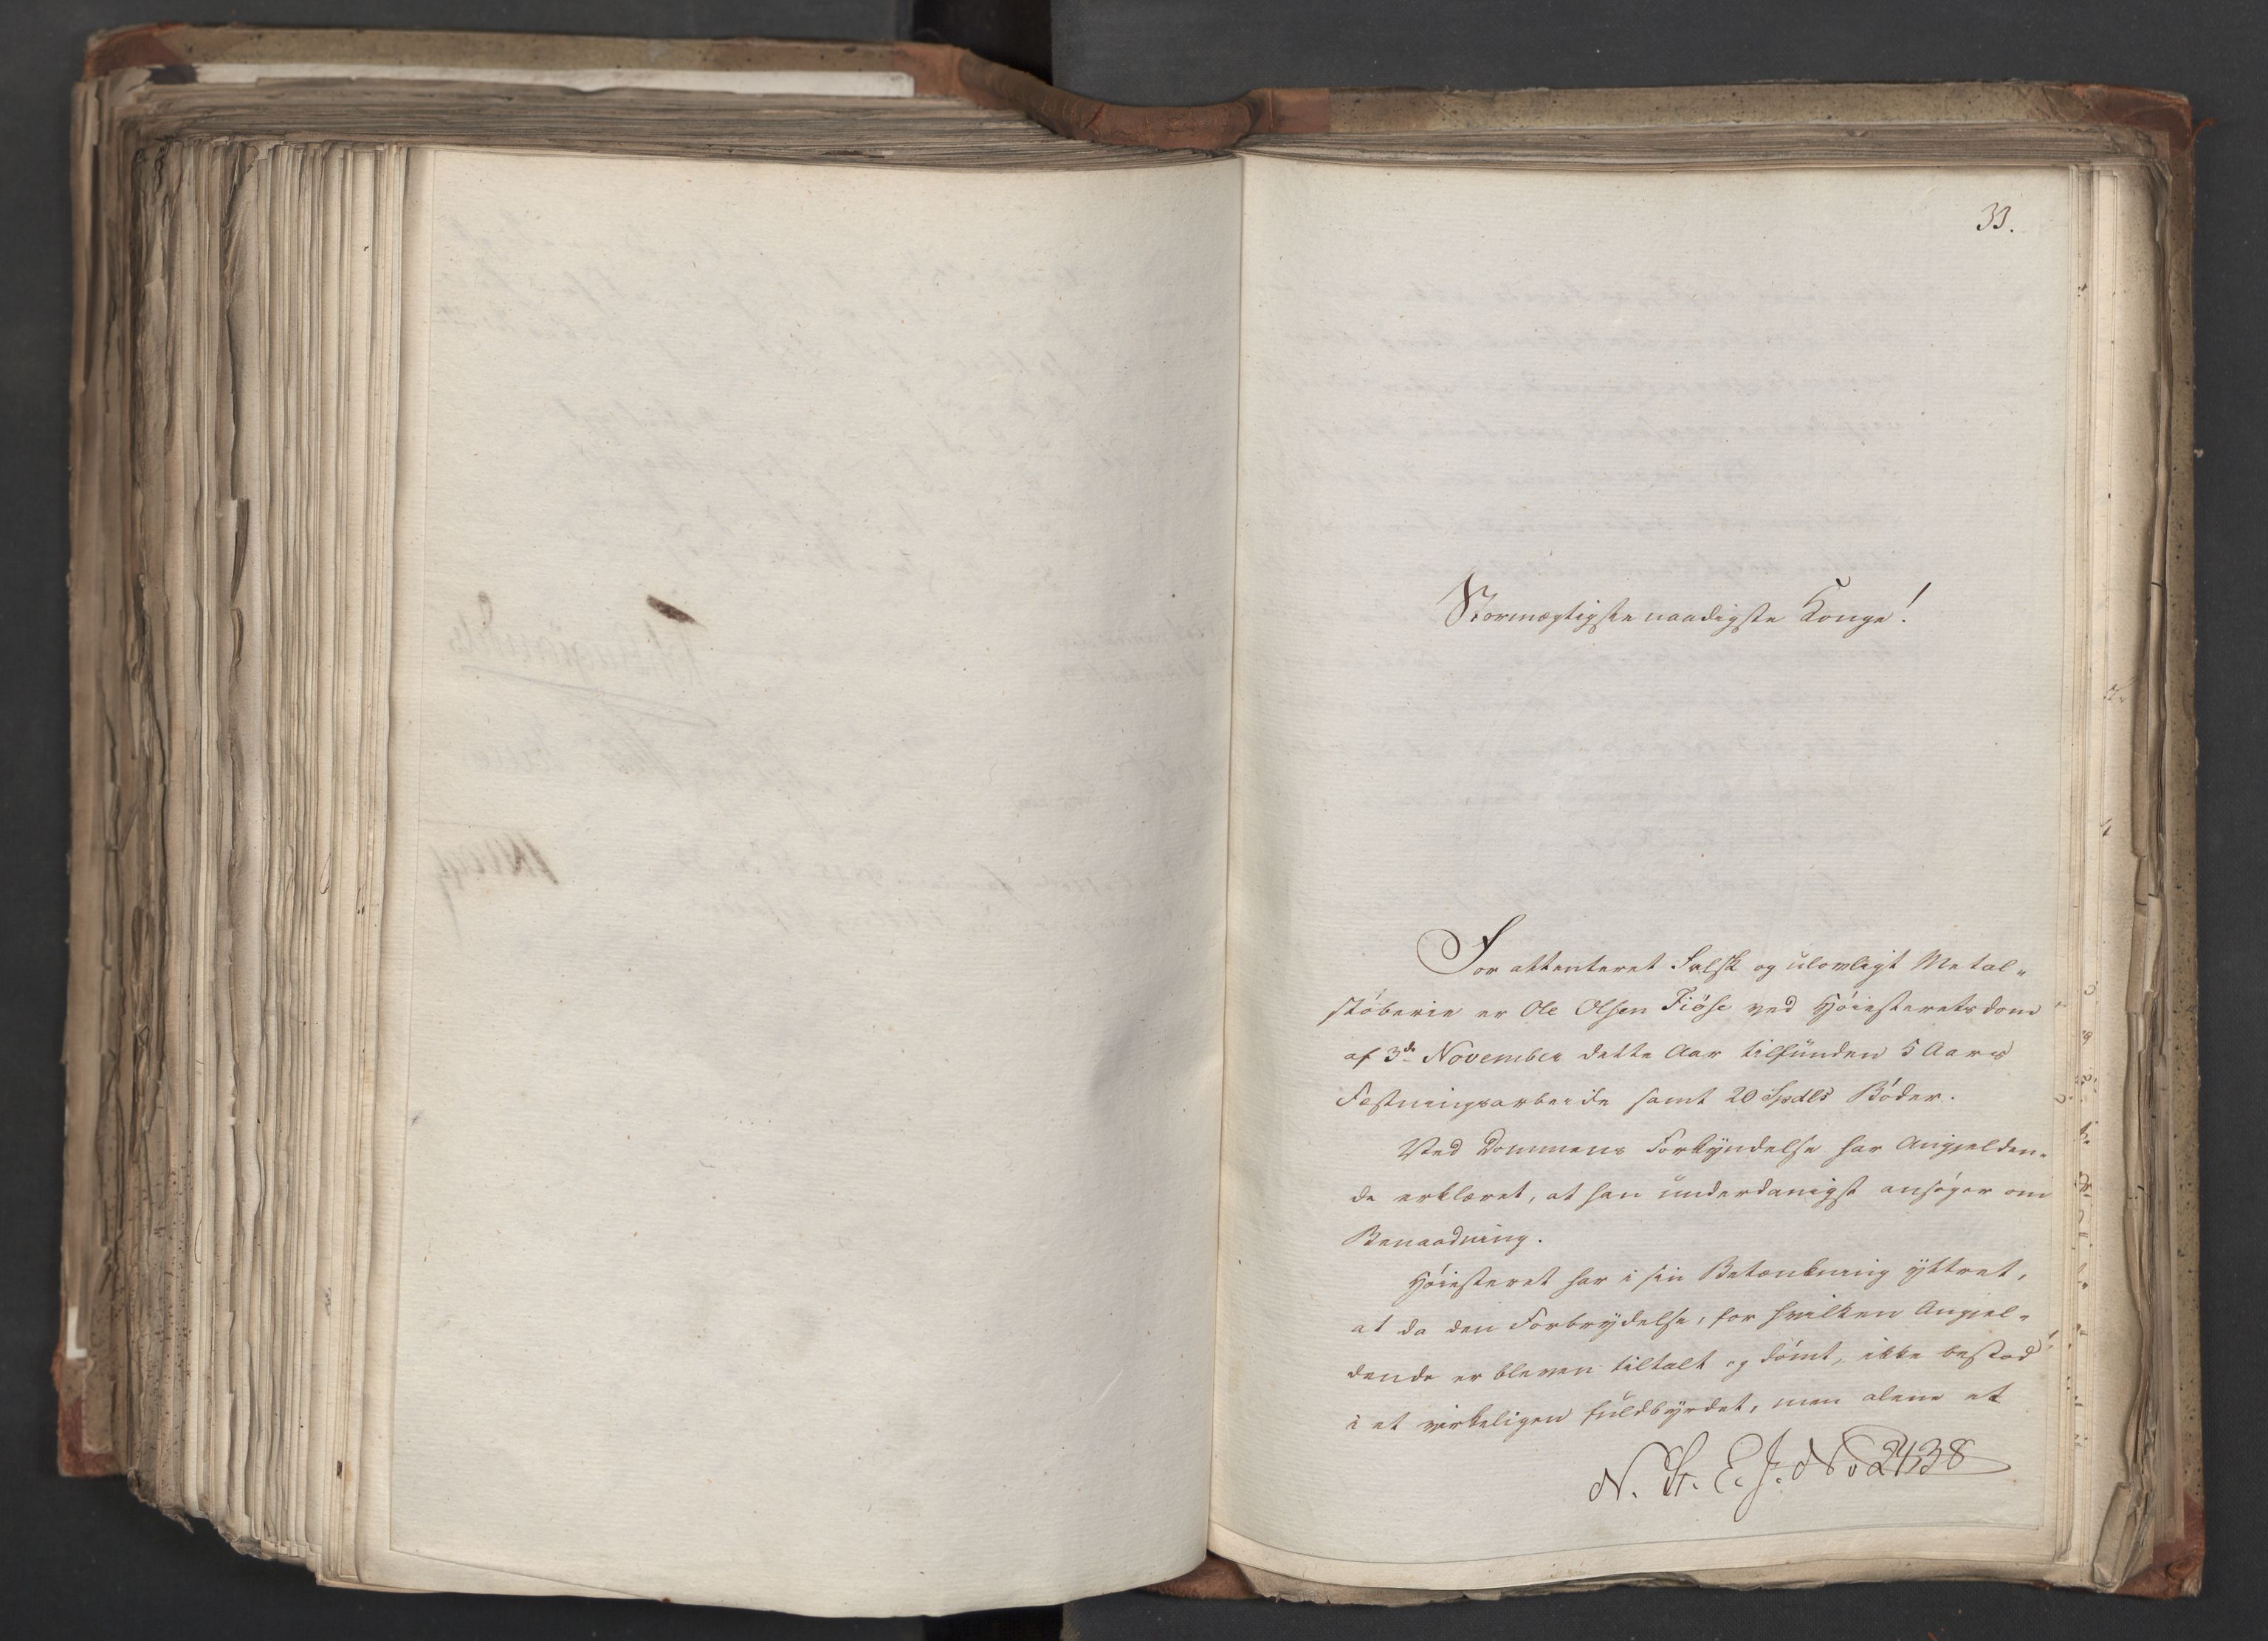 33.
Stormægtigste naadigste Konge!
For attenteret falsk og ulovligt Metal-
støberie er Ole Olsen Fiöse ved Høiesteretsdom
af 3de November dette Aar tilfunden 5 Aars
Fæstningsarbeide samt 20 Spdlr Bøder.
Ved Dommens Forkyndelse har Angjelden-
de erklæret, at han underdanigst ansøger om
Benaadning.
Høiesteret har i sin Betænkning yttret,
at da den Forbrydelse, for hvilken Angjel-
dende er bleven tiltalt og dømt, ikke bestod
i et virkeligen fuldbyrdet, men alene et
N. St. E. J. No 2438